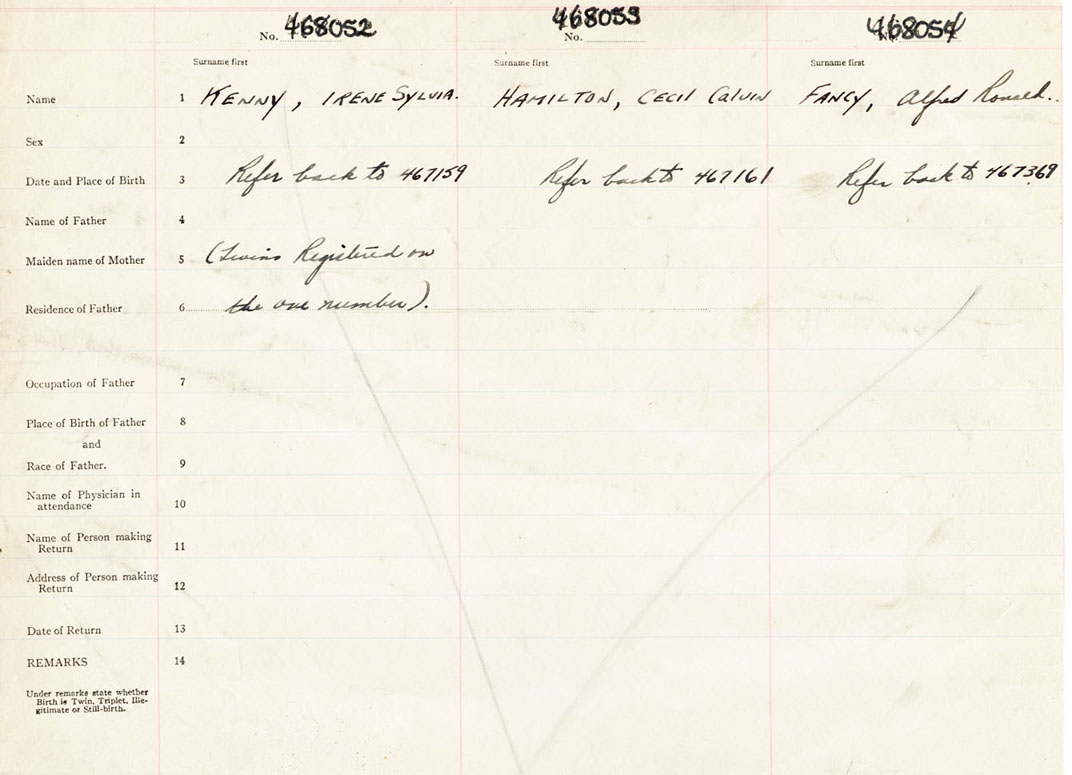 No. 468052 No. 468053 No. 468054
Surname first Surname first Surname first
Name 1 KENNY, IRENE SYLVIA. HAMILTON, CECIL Calvin FANCY, Alfred Ronald..
Sex 2
Date and Place of Birth 3 Refer back to 467159 Refer back to 467161 Refer back to 467369
Name of Father 4
Maiden name of Mother 5 (Twins Registered on
Residence of Father 6 the one number).
Occupation of Father 7
Place of Birth of Father 8
and
Race of Father. 9
Name of Physician in
attendance 10
Name of Person making
Return 11
Address of Person making
Return 12
Date of Return 13
REMARKS 14
Under remarks state whether
Birth is Twin, Triplet, Ille-
gitimate or Still-birth.